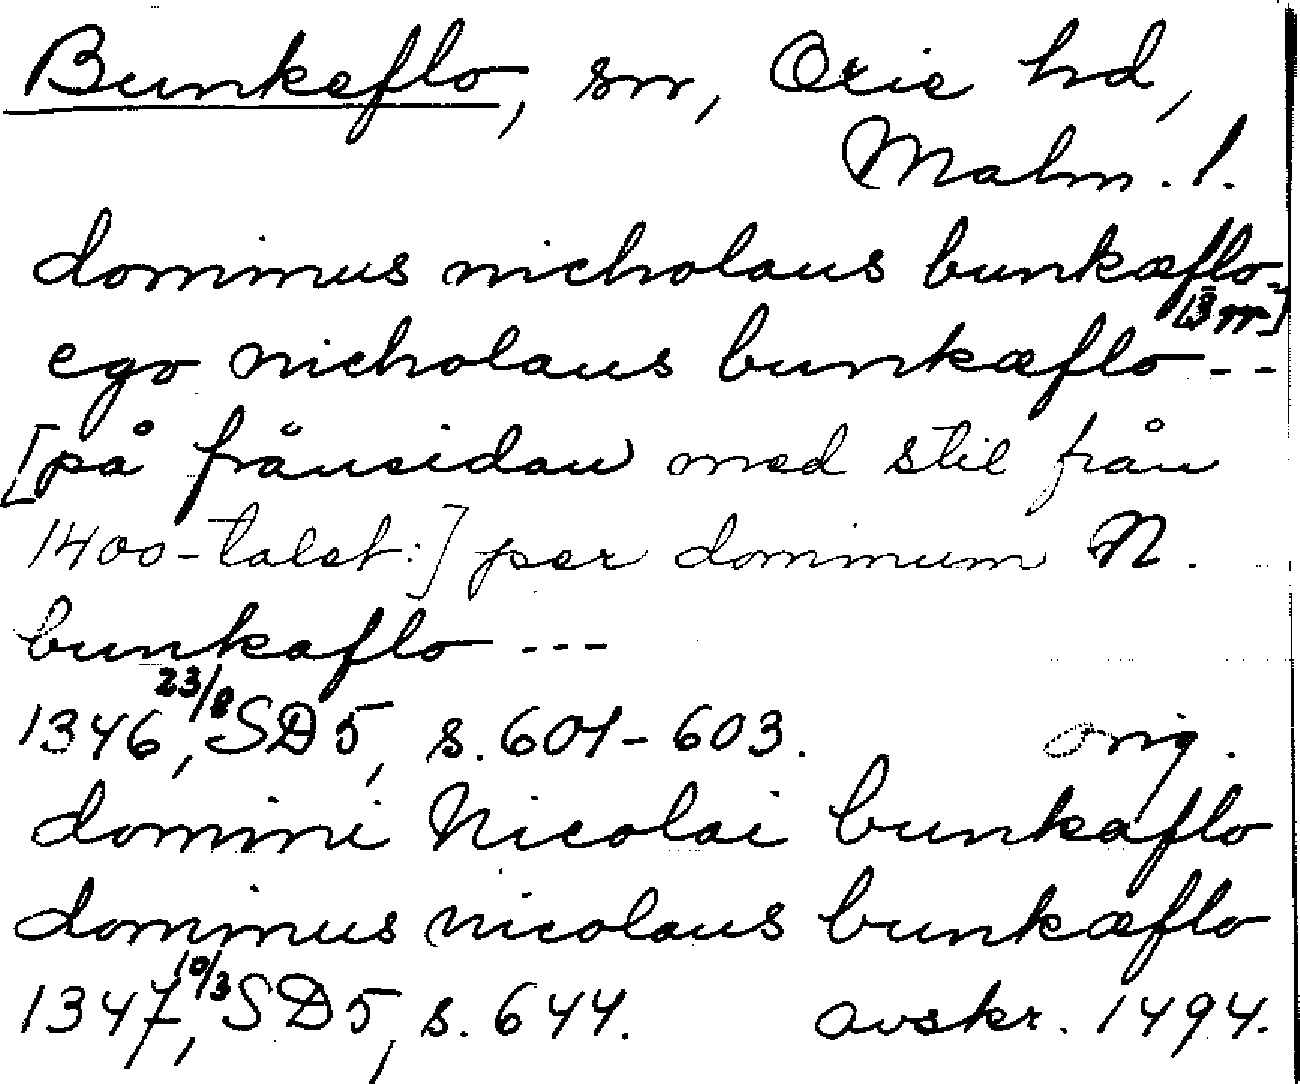 Bunkeflo, sn, Oxie hd,
Malm. l.
dominus nicholaus bunkæflo-
[3 ggr]
ego nicholaus bunkæflo ---
[på frånsidan med stil från
1400-talet:] per dominum N.
bunkaflo ---
1346 23/8, SD 5, s. 601-603. orig.
domini Nicolai bunkaflo
dominus nicolaus bunkæflo
1347 10/3, SD 5, s. 644. avskr. 1494.